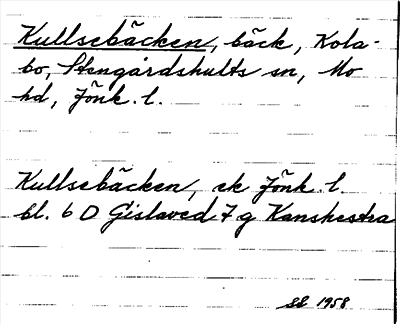 Kullsebäcken, bäck, Kola-
bo, Stengårdshults sn, Mo
hd, Jönk. l.
Kullsebäcken, ek Jönk. l.
bl. 6 D Gislaved 7 g Kanshestra
SE 1958